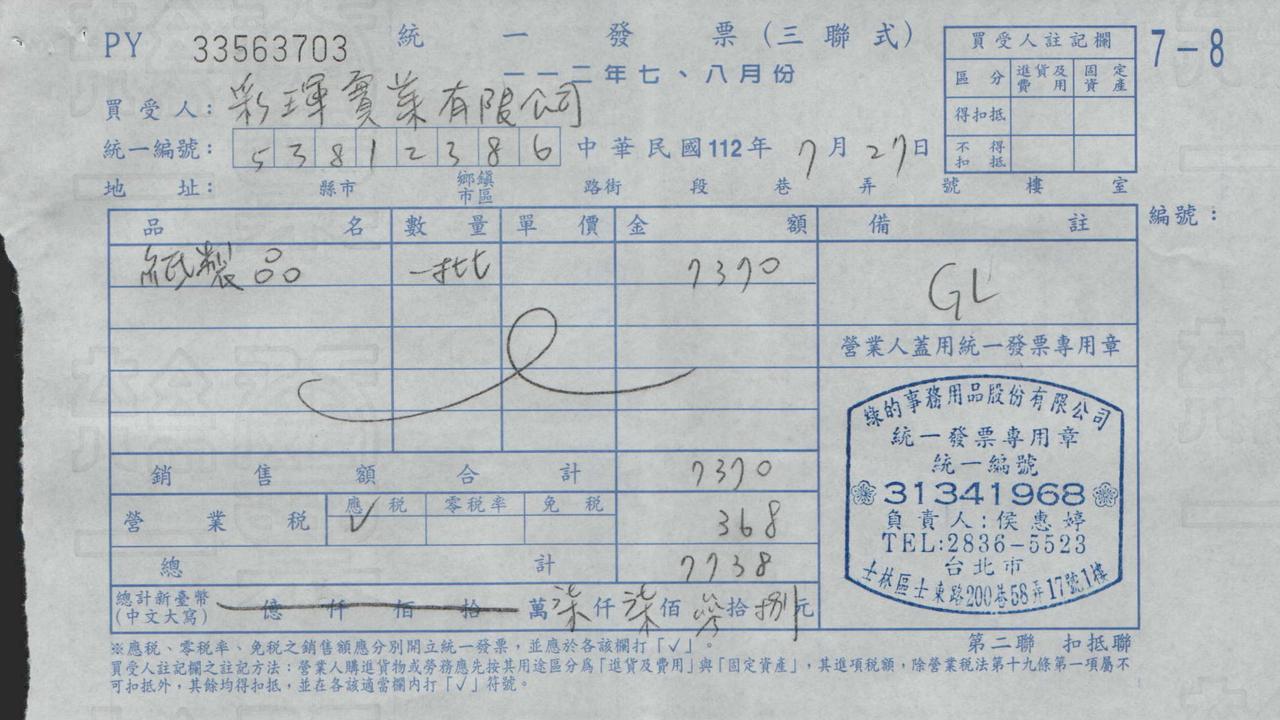 PY 33563703 統一發票(三聯式) 7-8
一一二年七、八月份
買受人:彩琿實業有限公司
統一編號:53812386 中華民國112年7月27日
地址: 縣市 鄉鎮市區 路街 段 巷 弄 號 樓 室
買受人註記欄
區分 進貨及費用 固定資產
得扣抵
不得扣抵
編號:
品名 數量 單價 金額 備註
紙製品 一批 7370 GL
營業人蓋用統一發票專用章
銷售額合計 7370
營業稅 應稅 ✓ 零稅率 免稅 368
總計 7738
總計新臺幣(中文大寫) 億 仟 佰 拾 萬 柒仟 柒佰 拾 捌元
綠的事務用品股份有限公司
統一發票專用章
統一編號
31341968
負責人:侯惠婷
TEL:2836-5523
台北市
士林區士東路200巷58弄17號1樓
第二聯 扣抵聯
※應稅、零稅率、免稅之銷售額應分別開立統一發票,並應於各該欄打「✓」。
買受人註記欄之註記方法:營業人購進貨物或勞務應先按其用途區分為「進貨及費用」與「固定資產」,其進項稅額,除營業稅法第十九條第一項屬不
可扣抵外,其餘均得扣抵,並在各該適當欄內打「✓」符號。